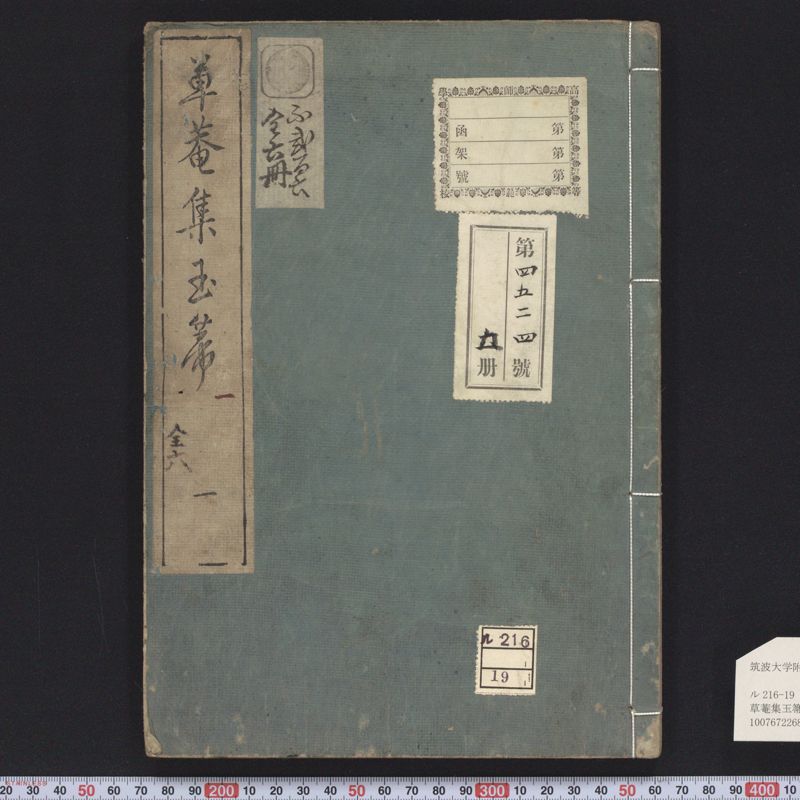 草菴集玉箒
一
全六
一
全六冊
高等師範學校
第 函
第 架
第 號
第四五二四號
六册
ル 216
19
筑波大学附
ル216-19
草菴集玉箒
1007672268
STAINLESS
20 30 40 50 60 70 80 90 200 10 20 30 40 50 60 70 80 90 300 10 20 30 40 50 60 70 80 90 400 10